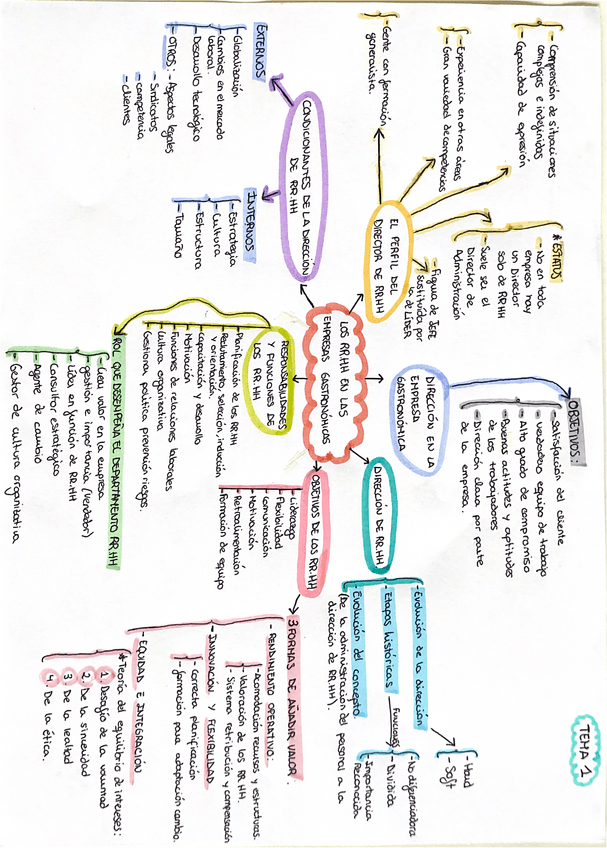 TEMA 1
LOS RR.HH EN LAS
EMPRESAS GASTRONÓMICAS
DIRECCIÓN EN LA
EMPRESA
GASTRONÓMICA
OBJETIVOS:
- Satisfacción del cliente
- verdadero equipo de trabajo
- Alto grado de compromiso
- Buenas actitudes y aptitudes
de los trabajadores
- Dirección clara por parte
de la empresa.
DIRECCIÓN DE RR.HH
- Evolución de la dirección
- Hard
- Soft
- Etapas históricas
Funciones
- No diferenciadora
- Dividida
- Importancia
Reconocida
- Evolución del concepto.
(De la administración del personal a la
dirección de RR.HH).
OBJETIVOS DE LOS RR.HH
- Liderazgo
- Flexibilidad
- Comunicación
- Motivación
- Retroalimentación
- Formación de equipo
3 FORMAS DE AÑADIR VALOR:
- RENDIMIENTO OPERATIVO:
- Acomodación recursos y estructuras.
- Valoración de los RR.HH.
- Sistema retribución y compensación
- INNOVACIÓN Y FLEXIBILIDAD
- Correcta planificación
- formación para adaptación cambio.
- EQUIDAD E INTEGRACIÓN
* Teoría del equilibrio de intereses:
1. Desafío de la voluntad
2. De la sinceridad
3. De la lealtad
4. De la ética.
RESPONSABILIDADES
Y FUNCIONES DE
LOS RR.HH
- Planificación de los RR.HH
- Reclutamiento, selección, inducción
y orientación.
- capacitación y desarrollo
- Motivación
- Funciones de relaciones laborales
- Cultura organizativa
- Gestiona política prevención riesgos.
ROL QUE DESEMPEÑA EL DEPARTAMENTO RR.HH
- Crea valor en la empresa
- gestión e importancia (vendedor)
- Líder en función de RR.HH
- Consultor estratégico
- Agente de cambio
- Gestor de cultura organizativa
CONDICIONANTES DE LA DIRECCIÓN
DE RR.HH
EXTERNOS
- Globalización
- Cambios en el mercado
laboral.
- Desarrollo tecnológico
- OTROS: - Aspectos legales
- Sindicatos
- competencia
- clientes
INTERNOS
- Estrategia
- Cultura
- Estructura
- Tamaño
EL PERFIL DEL
DIRECTOR DE RR.HH
- Gente con formación
generalista.
- Experiencia en otras áreas
- Gran variedad de competencias
- Comprensión de situaciones
complejas e indefinidas
- Capacidad de expresión
* ESTATUS
- No en toda
empresa hay
un Director
solo de RR.HH
- Suele ser el
Director de
Administración
- Figura de JEFE
sustituida por
la de LÍDER